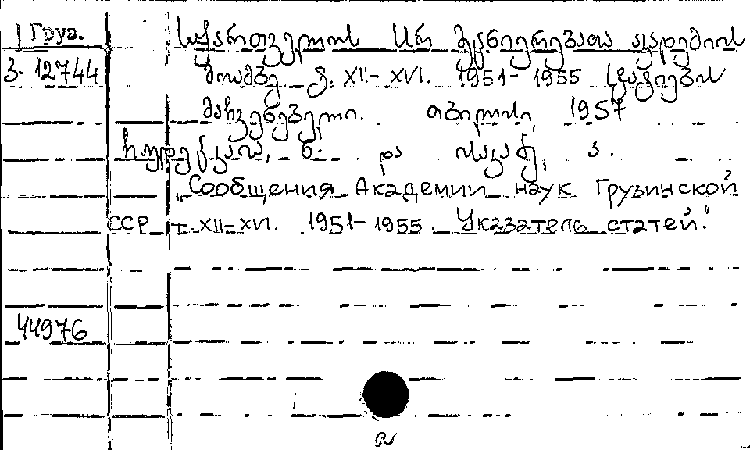 Груз.
საქართველოს სსრ მეცნიერებათა აკადემიის
3. 12744 მოამბე ტ. XII-XVI. 1951-1955 სტატიების
მაჩვენებელი. თბილისი, 1957
და
„Сообщения Академии наук Грузинской
ССР т. XII-XVI. 1951-1955 Указатель статей."
44976